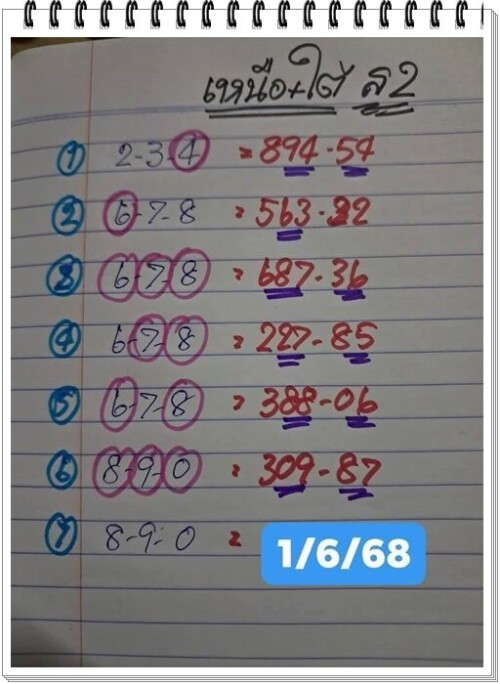 เหนือ+ใต้ ส2
1 2-3-4 = 894-54
2 6-7-8 = 563-22
3 6-7-8 = 687-36
4 6-7-8 = 227-85
5 6-7-8 = 388-06
6 8-9-0 = 309-87
7 8-9-0 =
1/6/68